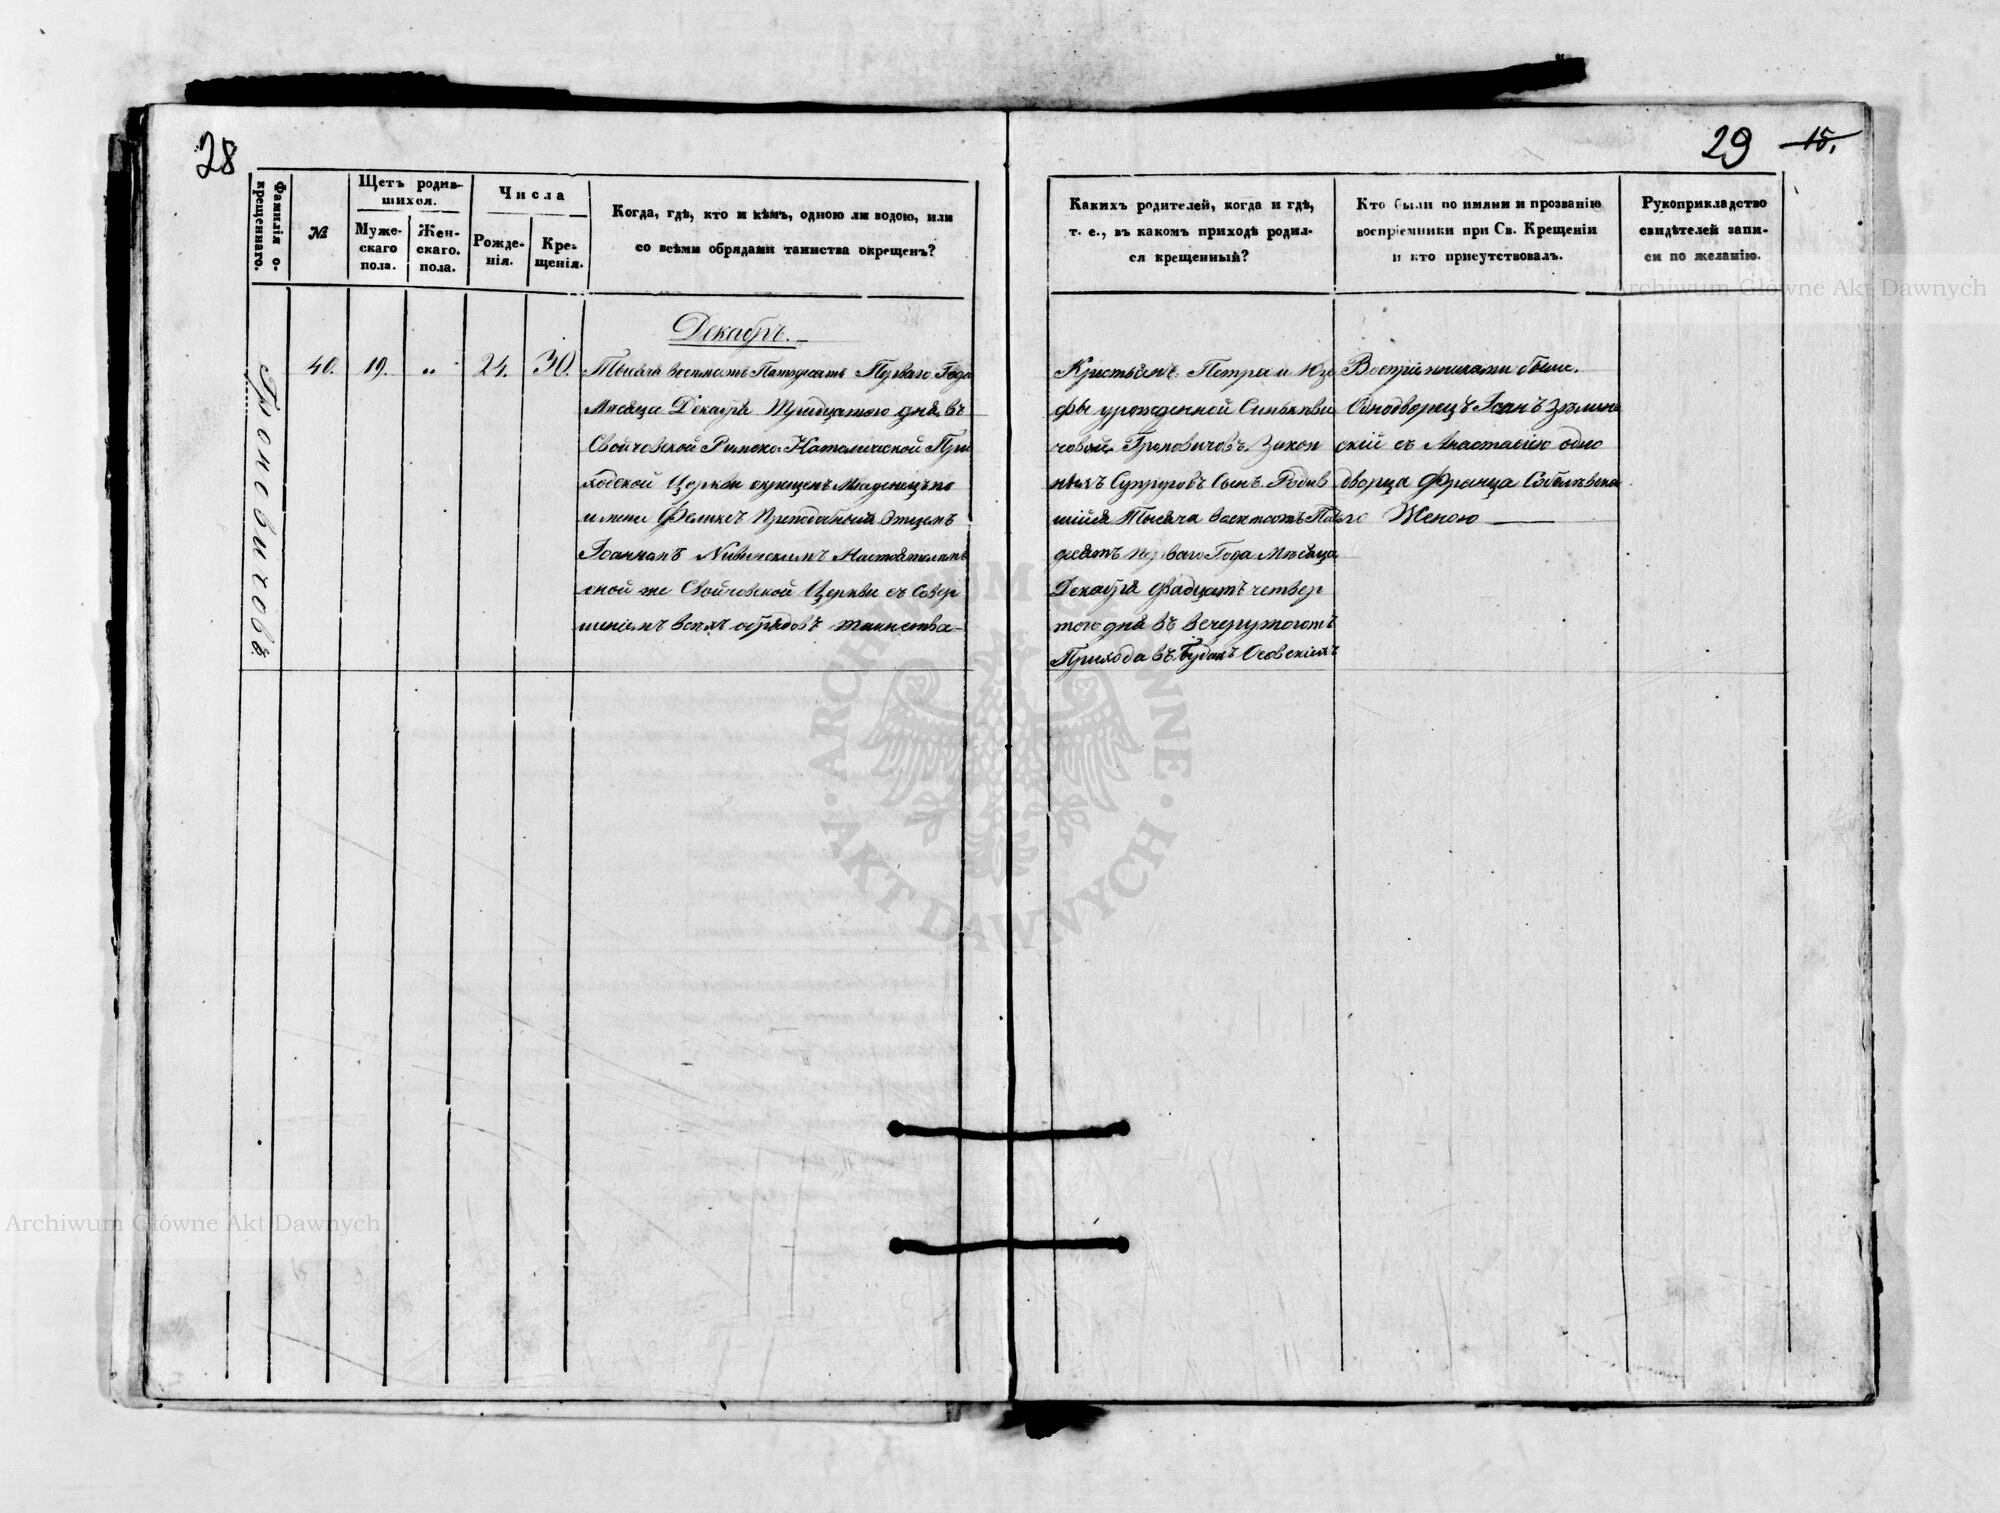 28
29 15.
Фамилія о-
крещеннаго.
№
Щетъ родив-
шихся.
Муже-
скаго
пола.
Жен-
скаго.
пола.
Числа
Рожде-
нія.
Кре-
щенія.
Когда, гдѣ, кто и кѣмъ, одною ли водою, или
со всѣми обрядами таинства окрещенъ?
Каких​ъ родителей, когда и гдѣ,
т. е., въ какомъ приходѣ родил-
ся крещенный?
Кто были по имяни и прозванію
воспріемники при Св. Крещеніи
и кто присутствовалъ.
Рукоприкладство
свидѣтелей запи-
си по желанію.
Декабрь.
40. 19. „ 24. 30.
Тысяча восемьсотъ Пятдесятъ Перваго Года
Мѣсяца Декабря Тридцатого дня въ
Свойчовской Римско-Католической При
ходской Церкви окрещенъ Младенецъ по
имени Феликсъ Преподобный Отцемъ
Іоанномъ Настоятелемъ
сной же Свойчовской Церкви съ Совер
шеніемъ всѣхъ обрядовъ таинства
Крестьянъ Петра и Юзе
фы урожденной
Закон
ныхъ Супруговъ Сынъ. Родив
шійся Тысяча восемсотъ Пять
десятъ перваго Года Мѣсяца
Декабря Двадцать четвер
того дня въ вечеру тогожъ
Прихода въ Будахъ Осовскихъ
Воспріемниками были.
Однодворецъ Іоанъ
скій съ Анастасіею одно
дворца Франца
го Женою
Archiwum Główne Akt Dawnych
Archiwum Główne Akt Dawnych
ARCHIWUM GŁÓWNE AKT DAWNYCH